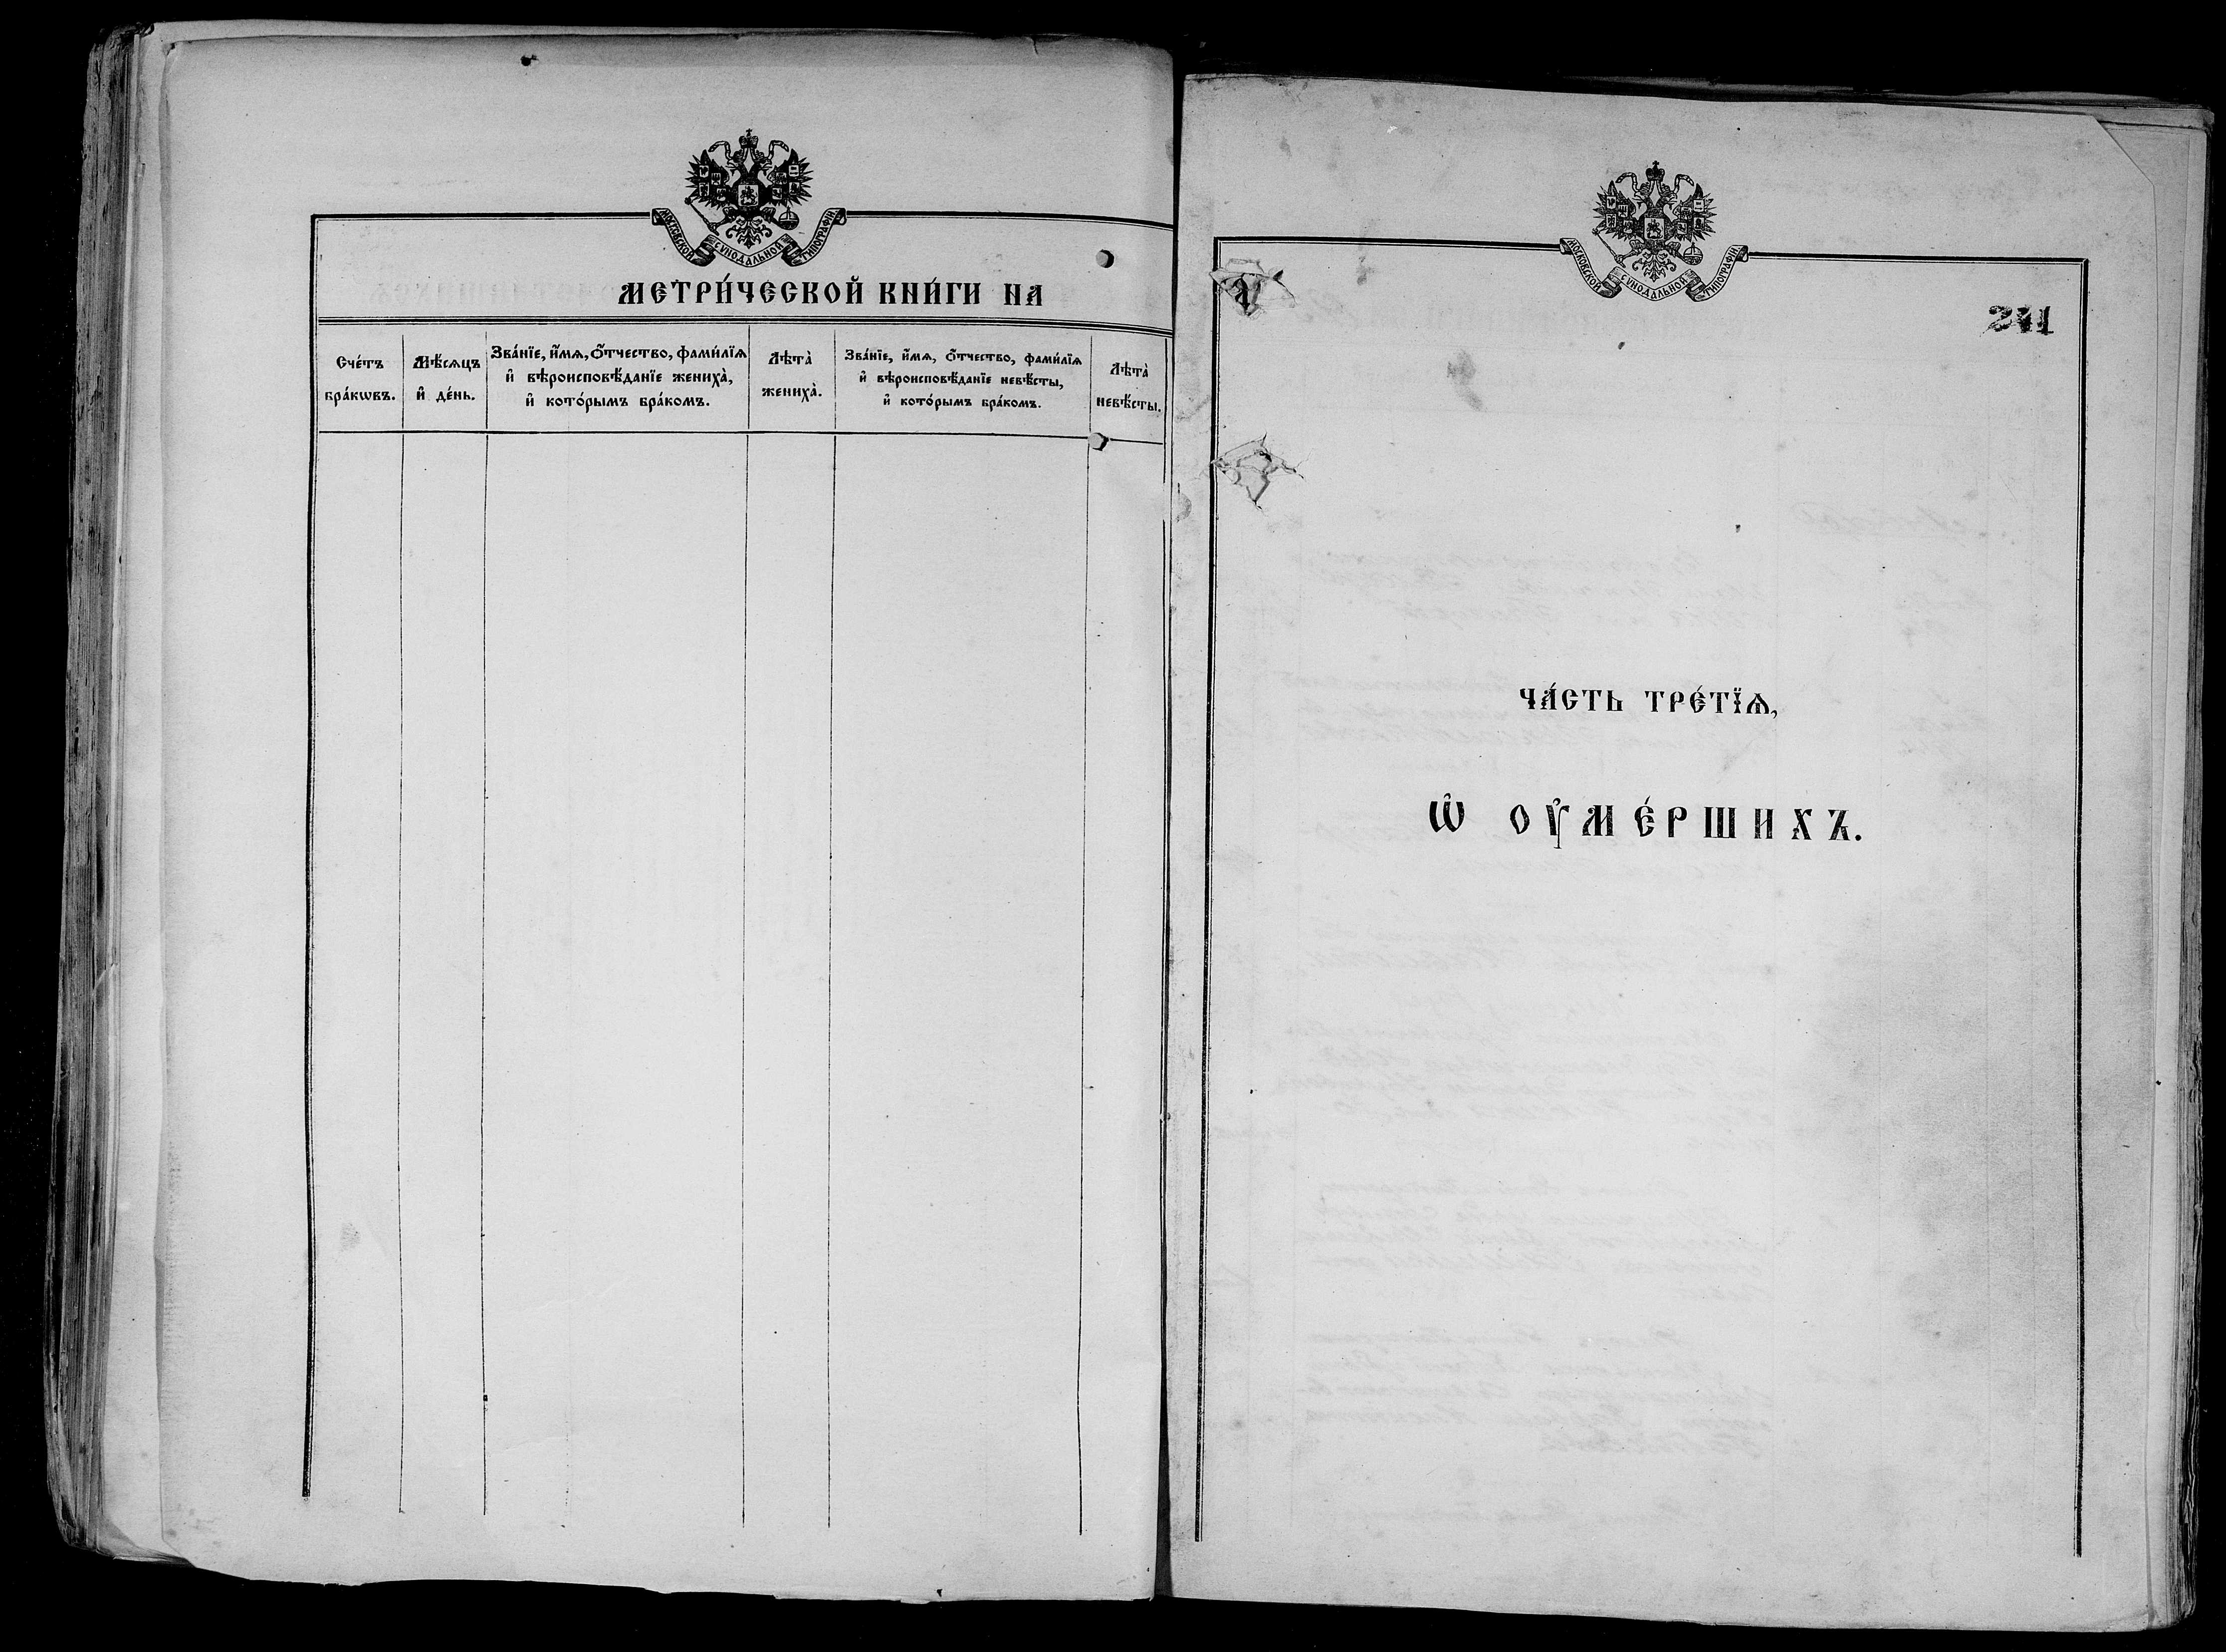 МОСКОВСКОЙ СѴНОДАЛЬНОЙ ТИПОГРАФІИ.
МЕТРИ́ЧЕСКОЙ КНИ́ГИ НА
Сче́тъ
бра́кѡвъ.
Мѣ́сѧцъ
и҆ де́нь.
Зва́нїе, и҆́мѧ, ѻ҆́тчество, фами́лїѧ
и҆ вѣроисповѣ́данїе жениха̀,
и҆ кото́рымъ бра́комъ.
Лѣта̀
жениха̀.
Зва́нїе, и҆́мѧ, ѻ҆́тчество, фами́лїѧ
и҆ вѣроисповѣ́данїе невѣ́сты,
и҆ кото́рымъ бра́комъ.
Лѣта̀
невѣ́сты.
МОСКОВСКОЙ СѴНОДАЛЬНОЙ ТИПОГРАФІИ.
241
ЧА́СТЬ ТРЕ́ТЇѦ,
Ѡ҆ ОУ҆МЕ́РШИХЪ.